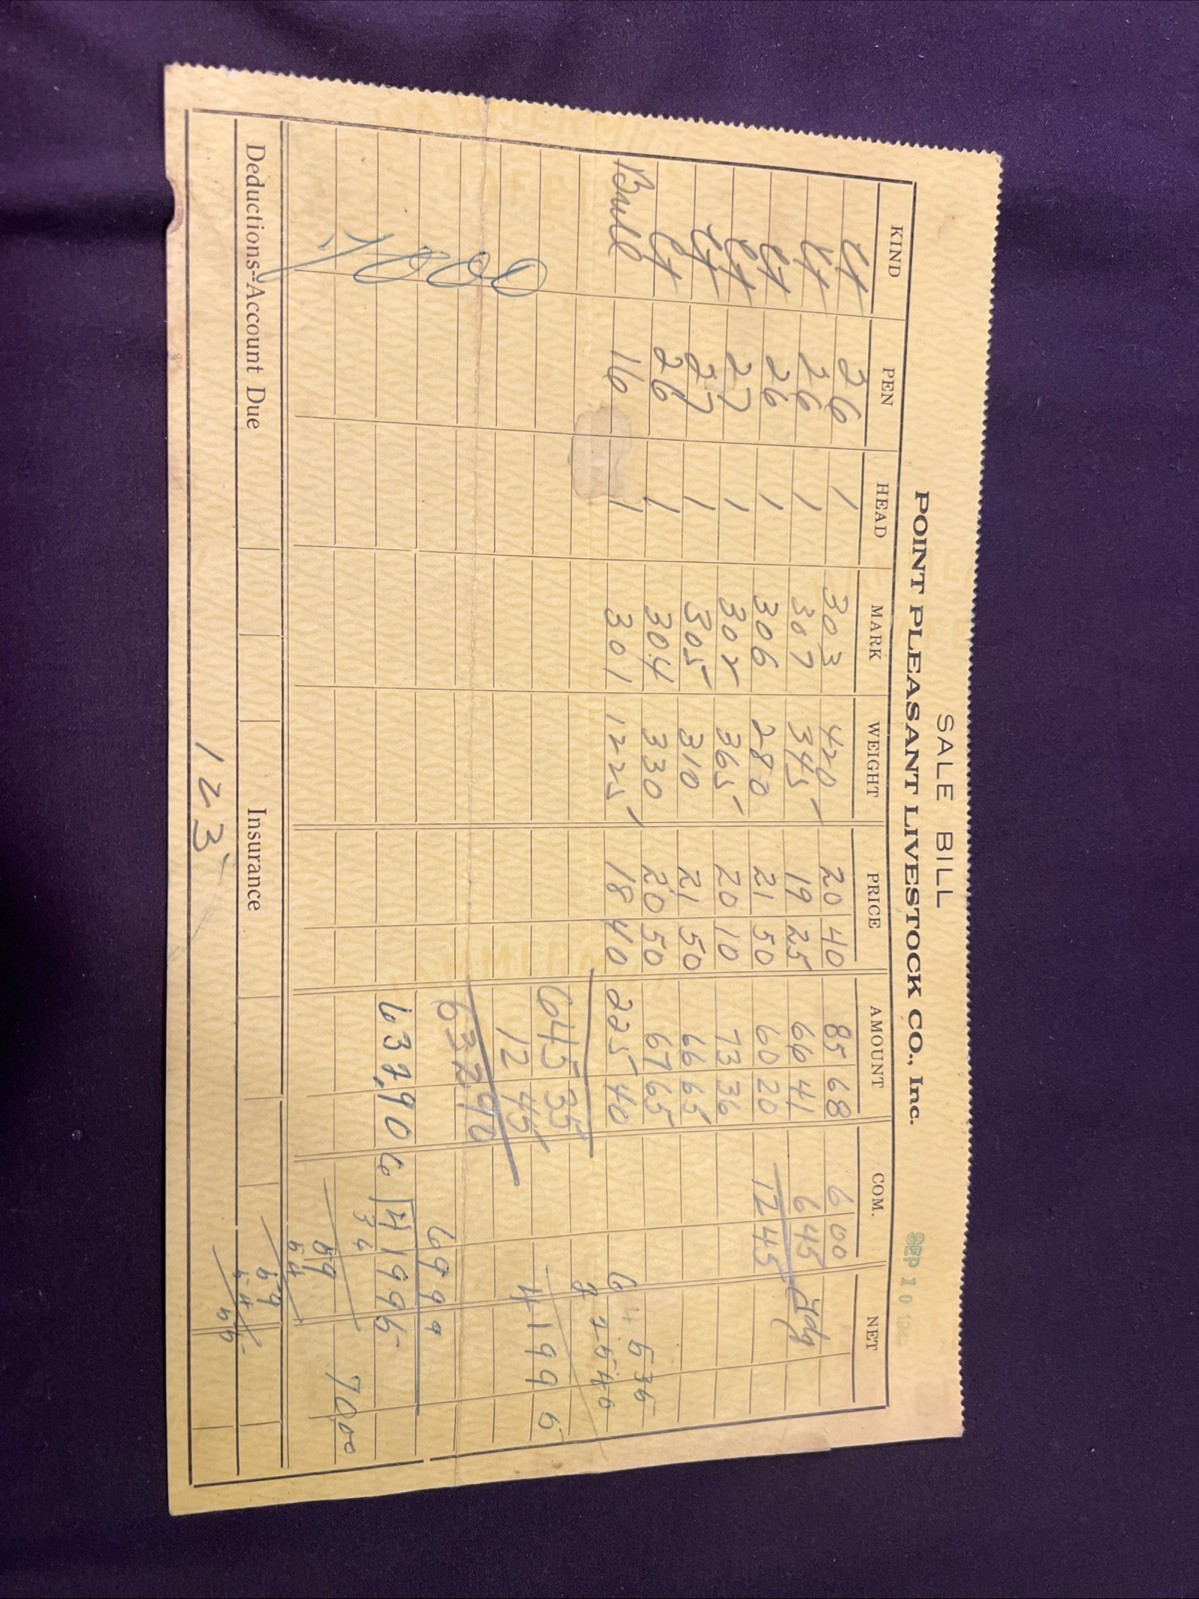 SALE BILL
POINT PLEASANT LIVESTOCK CO., Inc.
SEP 10
KIND PEN HEAD MARK WEIGHT PRICE AMOUNT COM. NET
Ct 26 1 303 420 20 40 85 68 6 00
Ct 26 1 307 345 19 25 66 41 6 45
Ct 26 1 306 280 21 50 60 20 12 45
Ct 27 1 302 365 20 10 73 36
Ct 27 1 305 310 21 50 66 65
Ct 26 1 304 330 20 50 67 65
Bull 16 1 301 1225 18 40 225 40 645 35
225 40
645 35 419 95
12 45
632 90 69 99
632,90 6 419 95
36
59 70 00
54
Deductions--Account Due Insurance 59
54
123 55